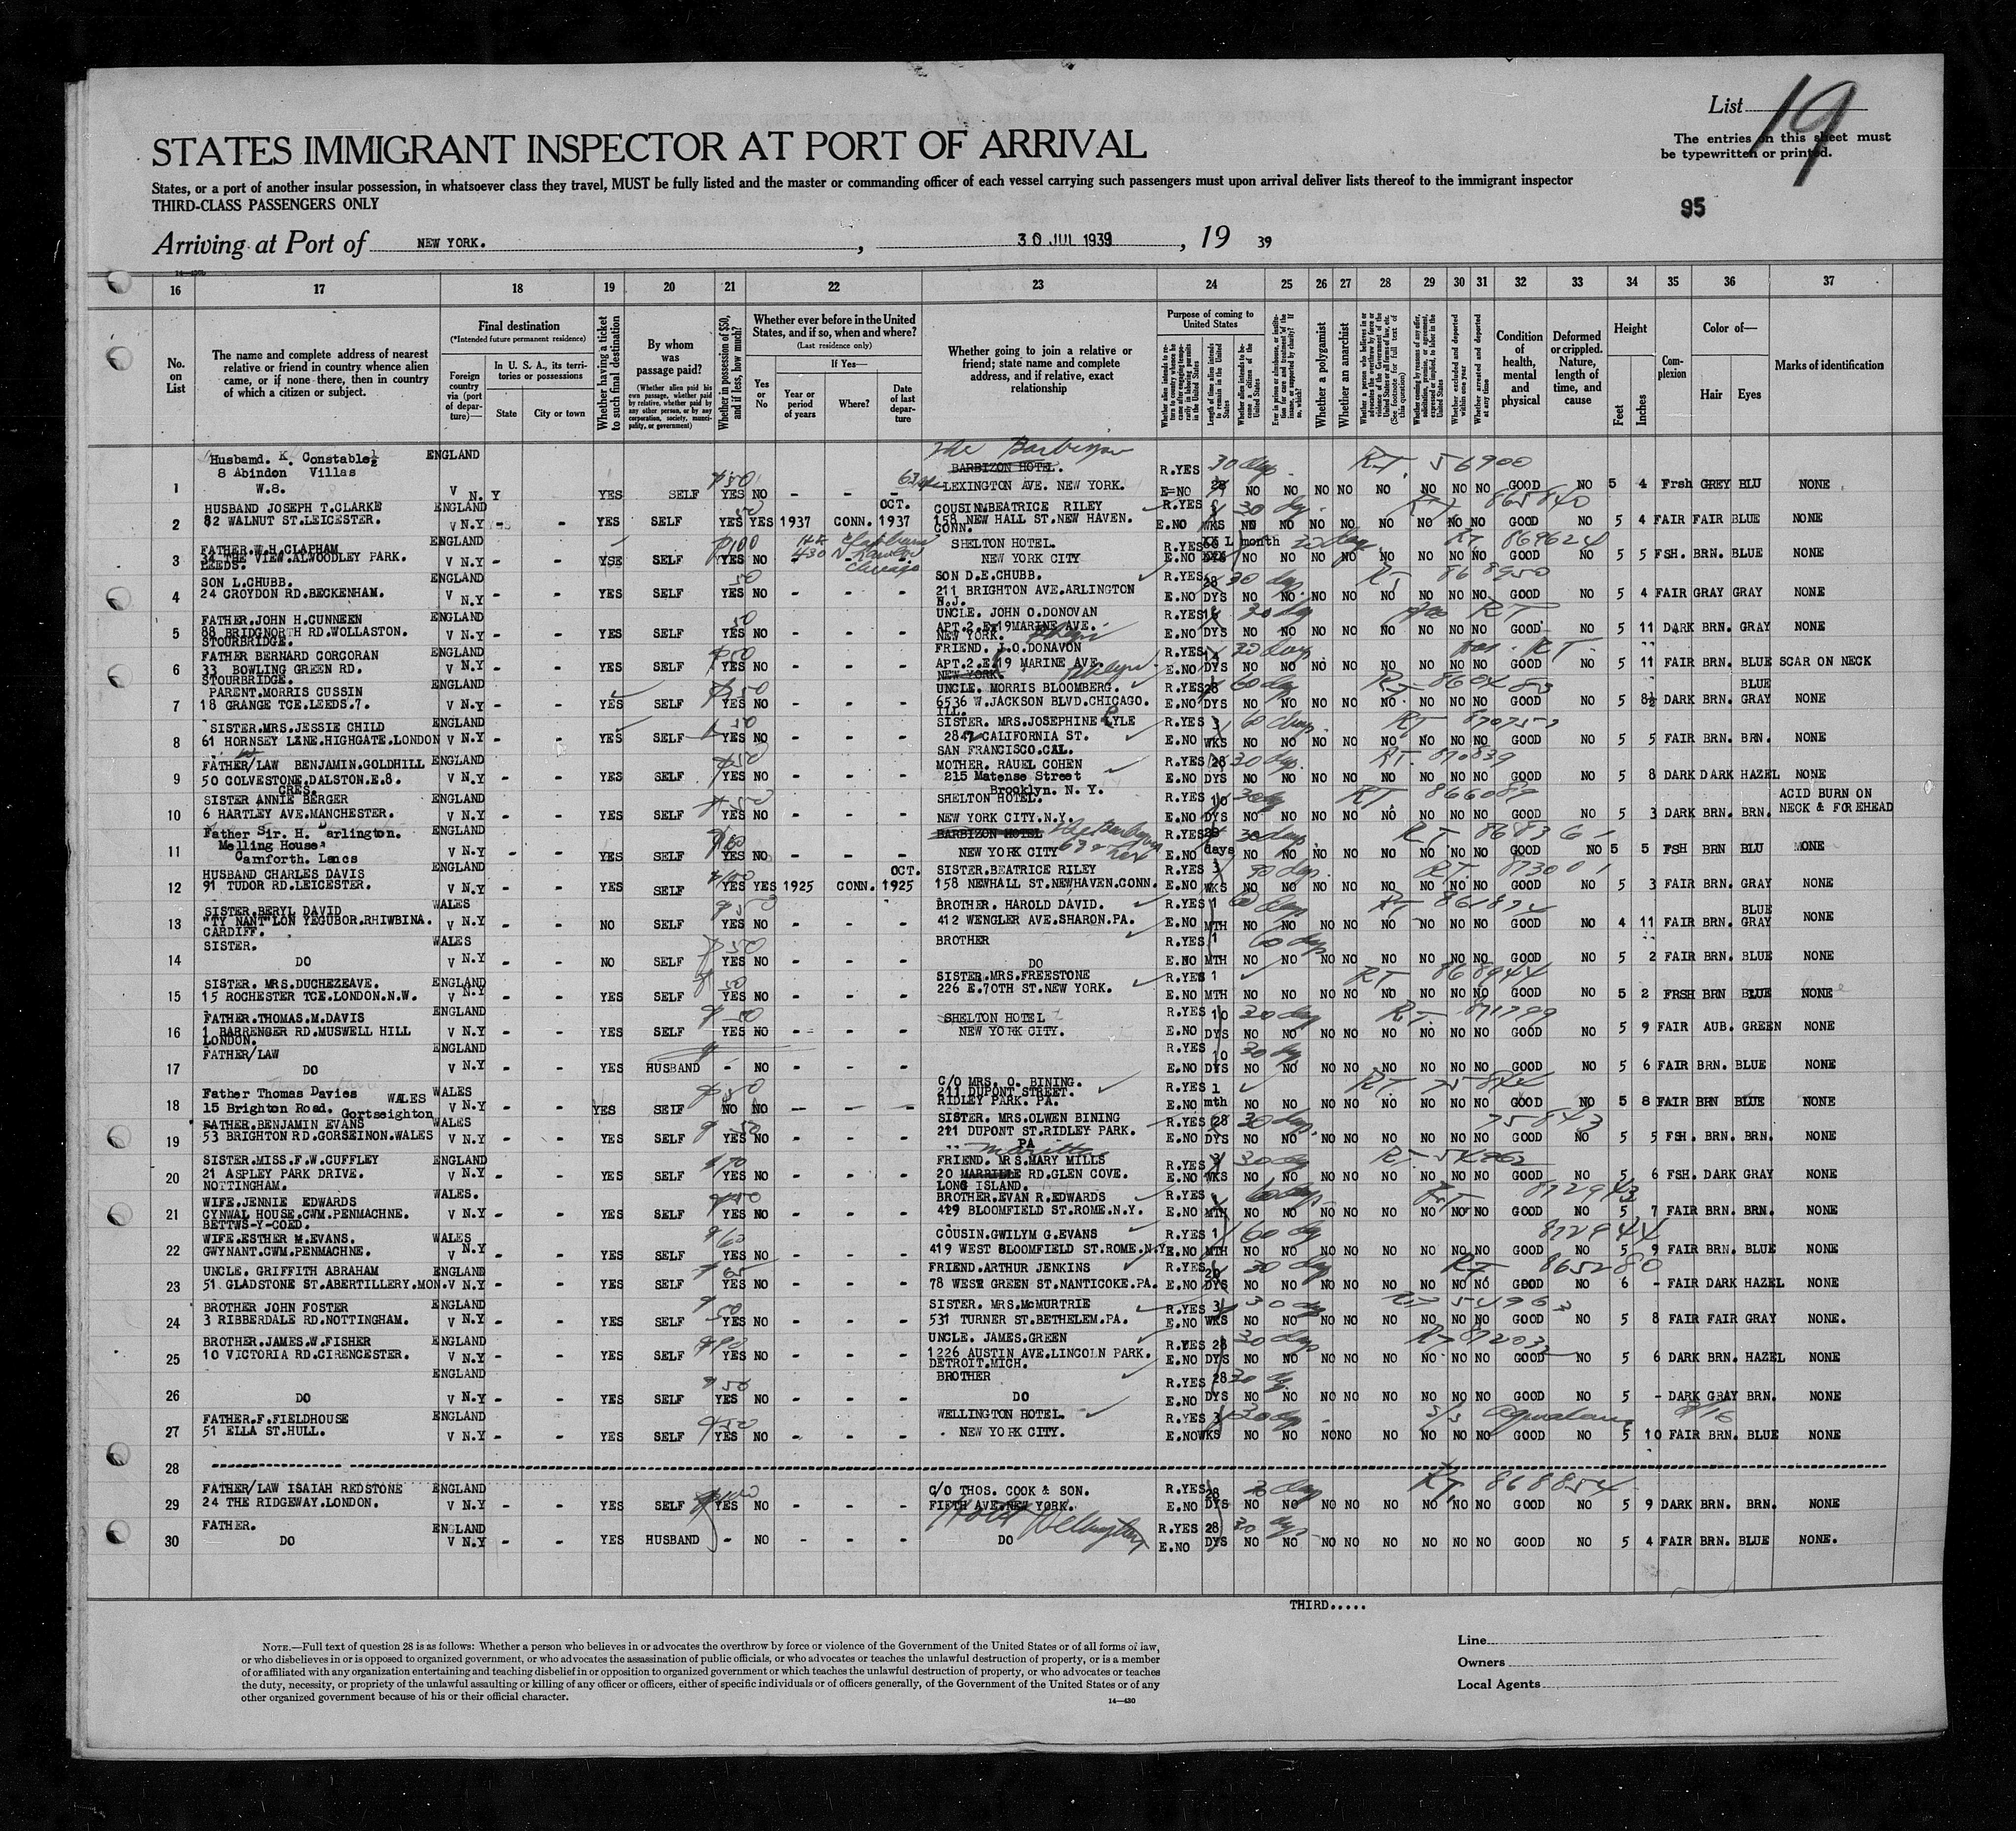 List 19
The entries on this sheet must
be typewritten or printed.
STATES IMMIGRANT INSPECTOR AT PORT OF ARRIVAL
States, or a port of another insular possession, in whatsoever class they travel, MUST be fully listed and the master or commanding officer of each vessel carrying such passengers must upon arrival deliver lists thereof to the immigrant inspector
THIRD-CLASS PASSENGERS ONLY
95
Arriving at Port of NEW YORK. , 30 JUL 1939 , 19 39
16 17 18 19 20 21 22 23 24 25 26 27 28 29 30 31 32 33 34 35 36 37
No. on List
The name and complete address of nearest relative or friend in country whence alien came, or if none there, then in country of which a citizen or subject.
Final destination
(*Intended future permanent residence)
Foreign country via (port of departure)—
In U. S. A., its territories or possessions
State
City or town
Whether having a ticket to such final destination
By whom was passage paid?
(Whether alien paid his own passage, whether paid by relative, whether paid by any other person, or by any corporation, society, municipality, or government)
Whether in possession of $50, and if less, how much?
Whether ever before in the United States, and if so, when and where?
(Last residence only)
Yes or No
If Yes—
Year or period of years
Where?
Date of last departure
Whether going to join a relative or friend; state name and complete address, and if relative, exact relationship
Purpose of coming to United States
Length of time alien intends to remain in the United States
Whether alien intends to become a citizen of the United States
Whether a polygamist
Whether an anarchist
Condition of health, mental and physical
Deformed or crippled. Nature, length of time, and cause
Height
Feet
Inches
Complexion
Color of—
Hair
Eyes
Marks of identification
1 Husband. K. Constable ENGLAND The Barbizon
8 Abindon Villas BARBIZON HOTEL. R.YES 30 days RT. 56900
W.8. V N.Y YES SELF $50 YES NO - - - LEXINGTON AVE. NEW YORK. E=NO NO NO NO NO NO NO NO NO GOOD NO 5 4 Frsh GREY BLU NONE
2 HUSBAND JOSEPH T.CLARKE ENGLAND OCT. COUSIN BEATRICE RILEY R.YES 30 dys. RT. 865840
82 WALNUT ST.LEICESTER. V N.Y - YES SELF YES YES 1937 CONN. 1937 158 NEW HALL ST.NEW HAVEN. CONN. E.NO WKS NO NO NO NO NO NO NO NO GOOD NO 5 4 FAIR FAIR BLUE NONE
3 FATHER.W.H.CLAPHAM ENGLAND $100 SHELTON HOTEL. R.YES 1 month RT 869624
34 THE VIEW.ALWOODLEY PARK. LEEDS. V N.Y - - YSE SELF YES NO Chicago NEW YORK CITY E.NO NO NO NO NO NO NO NO NO GOOD NO 5 5 FSH. BRN. BLUE NONE
4 SON L.CHUBB. ENGLAND 50 SON D.E.CHUBB. R.YES 28 30 days RT 868950
24 CROYDON RD.BECKENHAM. V N.Y - - YES SELF YES NO - - - 211 BRIGHTON AVE.ARLINGTON N.J. E.NO DYS NO NO NO NO NO NO NO NO GOOD NO 5 4 FAIR GRAY GRAY NONE
5 FATHER.JOHN H.CUNNEEN ENGLAND 50 UNCLE. JOHN O.DONOVAN R.YES 30 dys RT
88 BRIDGNORTH RD.WOLLASTON. STOURBRIDGE. V N.Y - - YES SELF YES NO - - - APT.2.E.19 MARINE AVE. NEW YORK. E.NO DYS NO NO NO NO NO NO NO NO GOOD NO 5 11 DARK BRN. GRAY NONE
6 FATHER BERNARD CORCORAN ENGLAND $50 FRIEND. J.O.DONAVON R.YES 14 30 days RT.
33 BOWLING GREEN RD. STOURBRIDGE. V N.Y - - YES SELF YES NO - - - APT.2.E.19 MARINE AVE. NEW YORK. E.NO DYS NO NO NO NO NO NO NO NO GOOD NO 5 11 FAIR BRN. BLUE SCAR ON NECK
7 PARENT.MORRIS CUSSIN ENGLAND $50 UNCLE. MORRIS BLOOMBERG. R.YES 28 60 days RT. BLUE
18 GRANGE TCE.LEEDS.7. V N.Y - - YES SELF YES NO - - - 6536 W.JACKSON BLVD.CHICAGO. ILL. E.NO DYS NO NO NO NO NO NO NO NO GOOD NO 5 8½ DARK BRN. GRAY NONE
8 SISTER.MRS.JESSIE CHILD ENGLAND 50 SISTER. MRS.JOSEPHINE LYLE R.YES 3 60 days. RT
61 HORNSEY LANE.HIGHGATE.LONDON V N.Y - - YES SELF YES NO - - - 2847 CALIFORNIA ST. SAN FRANCISCO.CAL. E.NO WKS NO NO NO NO NO NO NO NO GOOD NO 5 5 FAIR BRN. BRN. NONE
9 FATHER/LAW BENJAMIN.GOLDHILL ENGLAND $50 MOTHER. RAUEL COHEN R.YES 28 30 dys. RT. 870839
50 COLVESTONE.DALSTON.E.8. CRES. V N.Y - - YES SELF YES NO - - - 215 Matense Street Brooklyn. N. Y. E.NO DYS NO NO NO NO NO NO NO NO GOOD NO 5 8 DARK DARK HAZEL NONE
10 SISTER ANNIE BERGER ENGLAND $50 SHELTON HOTEL. R.YES 10 30 dys RT. 866089 ACID BURN ON
6 HARTLEY AVE.MANCHESTER. V N.Y - - YES SELF YES NO - - - NEW YORK CITY.N.Y. E.NO DYS NO NO NO NO NO NO NO NO GOOD NO 5 3 DARK BRN. BRN. NECK & FOREHEAD
11 Father Sir. H. Darlington. ENGLAND BARBIZON HOTEL The Barbizon R.YES 30 days RT.
Melling House. Camforth. Lancs V N.Y YES SELF YES NO - - - NEW YORK CITY E.NO days NO NO NO NO NO NO NO NO GOOD NO 5 5 FSH BRN BLU NONE
12 HUSBAND CHARLES DAVIS ENGLAND OCT. SISTER.BEATRICE RILEY R.YES 3 90 dys. RT. 873001
91 TUDOR RD.LEICESTER. V N.Y - - YES SELF YES YES 1925 CONN. 1925 158 NEWHALL ST.NEWHAVEN.CONN. E.NO WKS NO NO NO NO NO NO NO NO GOOD NO 5 3 FAIR BRN. GRAY NONE
13 SISTER.BERYL DAVID WALES $50 BROTHER. HAROLD DAVID. R.YES 1 60 days RT 861874 BLUE
"TY NANT"LON YEGUBOR.RHIWBINA. CARDIFF. V N.Y - - NO SELF YES NO - - - 412 WENGLER AVE.SHARON.PA. E.NO MTH NO NO NO NO NO NO NO NO GOOD NO 4 11 FAIR BRN. GRAY NONE
14 SISTER. WALES $50 BROTHER R.YES 1 60 days
DO V N.Y - - NO SELF YES NO - - - DO E.NO MTH NO NO NO NO NO NO NO NO GOOD NO 5 2 FAIR BRN. BLUE NONE
15 SISTER. MRS.DUCHEZEAVE. ENGLAND 50 SISTER.MRS.FREESTONE R.YES 1 RT 868944
15 ROCHESTER TCE.LONDON.N.W. V N.Y - - YES SELF YES NO - - - 226 E.70TH ST.NEW YORK. E.NO MTH NO NO NO NO NO NO NO NO GOOD NO 5 2 FRSH BRN BLUE NONE
16 FATHER.THOMAS.M.DAVIS ENGLAND $50 SHELTON HOTEL R.YES 10 30 dys RT. 871799
1 BARRENGER RD.MUSWELL HILL LONDON. V N.Y - - YES SELF YES NO - - - NEW YORK CITY. E.NO DYS NO NO NO NO NO NO NO NO GOOD NO 5 9 FAIR AUB. GREEN NONE
17 FATHER/LAW ENGLAND R.YES 10 30 dys
DO V N.Y - - YES HUSBAND - NO - - - E.NO DYS NO NO NO NO NO NO NO NO GOOD NO 5 6 FAIR BRN. BLUE NONE
18 Father Thomas Davies WALES WALES $50 C/O MRS. O. BINING. R.YES 1 RT. 75844
15 Brighton Road. Gortseighton V N.Y - - YES SEIF NO NO - - - 211 DUPONT STREET. RIDLEY PARK. PA. E.NO mth NO NO NO NO NO NO NO NO GOOD NO 5 8 FAIR BRN BLUE NONE
19 FATHER.BENJAMIN EVANS WALES $50 SISTER. MRS.OLWEN BINING R.YES 28 30 days. 75843
53 BRIGHTON RD.GORSEINON.WALES V N.Y - - YES SELF YES NO - - - 221 DUPONT ST.RIDLEY PARK. PA E.NO DYS NO NO NO NO NO NO NO NO GOOD NO 5 5 FSH. BRN. BRN. NONE
20 SISTER.MISS.F.W.CUFFLEY ENGLAND $70 FRIEND. MRS.MARY MILLS R.YES 3 30 dys RT.
21 ASPLEY PARK DRIVE. NOTTINGHAM. V N.Y - - YES SELF YES NO - - - 20 RD.GLEN COVE. LONG ISLAND. E.NO WKS NO NO NO NO NO NO NO NO GOOD NO 5 6 FSH. DARK GRAY NONE
21 WIFE.JENNIE EDWARDS WALES. BROTHER.EVAN R.EDWARDS R.YES 60 days RT 872943
CYNWAL HOUSE.CWM.PENMACHNE. BETTWS-Y-COED. V N.Y - - YES SELF YES NO - - - 419 BLOOMFIELD ST.ROME.N.Y. E.NO MTH NO NO NO NO NO NO NO NO GOOD NO 5 7 FAIR BRN. BRN. NONE
22 WIFE.ESTHER M.EVANS. WALES $60 COUSIN.GWILYM G.EVANS R.YES 1 60 dys 872944
GWYNANT.CWM.PENMACHNE. V N.Y - - YES SELF YES NO - - - 419 WEST BLOOMFIELD ST.ROME.N.Y. E.NO MTH NO NO NO NO NO NO NO NO GOOD NO 5 9 FAIR BRN. BLUE NONE
23 UNCLE. GRIFFITH ABRAHAM ENGLAND $65 FRIEND.ARTHUR JENKINS R.YES 30 days RT 865280
51 GLADSTONE ST.ABERTILLERY.MON. V N.Y - - YES SELF YES NO - - - 78 WEST GREEN ST.NANTICOKE.PA. E.NO DYS NO NO NO NO NO NO NO NO GOOD NO 6 - FAIR DARK HAZEL NONE
24 BROTHER JOHN FOSTER ENGLAND $50 SISTER. MRS.McMURTRIE R.YES 3 30 dys RT 54963
3 RIBBERDALE RD.NOTTINGHAM. V N.Y - - YES SELF YES NO - - - 531 TURNER ST.BETHELEM.PA. E.NO WKS NO NO NO NO NO NO NO NO GOOD NO 5 8 FAIR FAIR GRAY NONE.
25 BROTHER.JAMES.W.FISHER ENGLAND $90 UNCLE. JAMES.GREEN R.YES 28 30 days RT
10 VICTORIA RD.CIRENCESTER. V N.Y - - YES SELF YES NO - - - 1226 AUSTIN AVE.LINCOLN PARK. DETROIT.MICH. E.NO DYS NO NO NO NO NO NO NO NO GOOD NO 5 6 DARK BRN. HAZEL NONE
26 ENGLAND $50 BROTHER R.YES 28 30 dys.
DO V N.Y - - YES SELF YES NO - - - DO E.NO DYS NO NO NO NO NO NO NO NO GOOD NO 5 - DARK GRAY BRN. NONE
27 FATHER.F.FIELDHOUSE ENGLAND $50 WELLINGTON HOTEL. R.YES 3 30 dys S/S Aquitania 8/16
51 ELLA ST.HULL. V N.Y - - YES SELF YES NO - - - NEW YORK CITY. E.NO WKS NO NO NO NO NO NO NO NO GOOD NO 5 10 FAIR BRN. BLUE NONE
28
29 FATHER/LAW ISAIAH REDSTONE ENGLAND C/O THOS. COOK & SON. R.YES 28 days RT. 868854
24 THE RIDGEWAY.LONDON. V N.Y - - YES SELF YES NO - - - FIFTH AVE.NEW YORK. E.NO DYS NO NO NO NO NO NO NO NO GOOD NO 5 9 DARK BRN. BRN. NONE
30 FATHER. ENGLAND Hotel Wellington R.YES 28 30 dys
DO V N.Y - - YES HUSBAND - NO - - - DO E.NO DYS NO NO NO NO NO NO NO NO GOOD NO 5 4 FAIR BRN. BLUE NONE.
THIRD.....
NOTE.—Full text of question 28 is as follows: Whether a person who believes in or advocates the overthrow by force or violence of the Government of the United States or of all forms of law,
or who disbelieves in or is opposed to organized government, or who advocates the assassination of public officials, or who advocates or teaches the unlawful destruction of property, or is a member
of or affiliated with any organization entertaining and teaching disbelief in or opposition to organized government or which teaches the unlawful destruction of property, or who advocates or teaches
the duty, necessity, or propriety of the unlawful assaulting or killing of any officer or officers, either of specific individuals or of officers generally, of the Government of the United States or of any
other organized government because of his or their official character.
14—430
Line
Owners
Local Agents